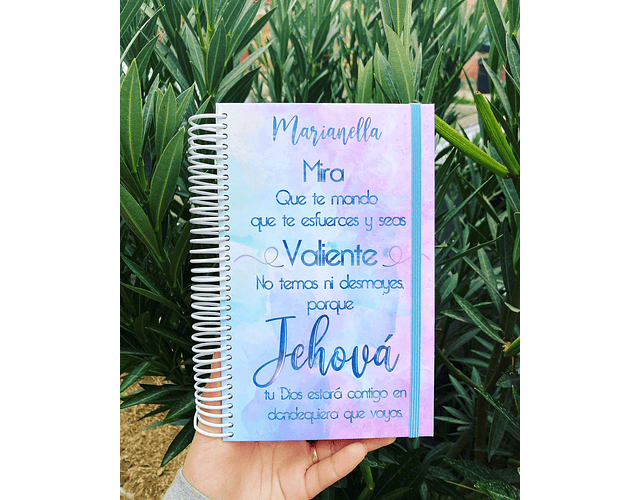 Marianella
Mira
Que te mando
que te esfuerces y seas
Valiente
No temas ni desmayes,
porque
Jehová
tu Dios estará contigo en
dondequiera que vayas.